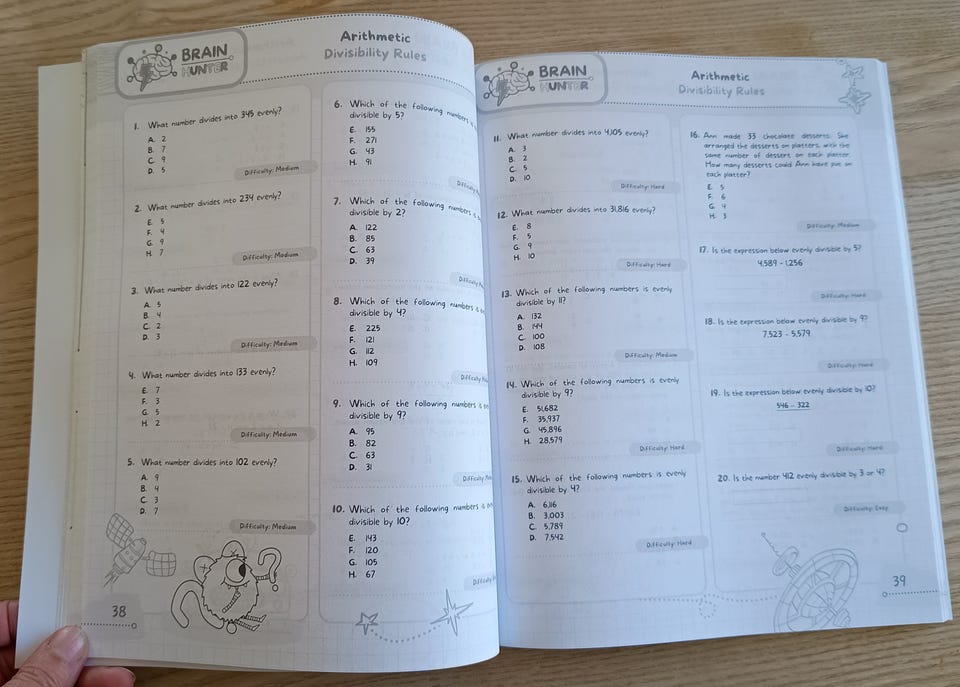 BRAIN
HUNTER
Arithmetic
Divisibility Rules
1. What number divides into 345 evenly?
A. 2
B. 7
C. 9
D. 5
Difficulty: Medium
2. What number divides into 234 evenly?
E. 5
F. 4
G. 9
H. 7
Difficulty: Medium
3. What number divides into 122 evenly?
A. 5
B. 4
C. 2
D. 3
Difficulty: Medium
4. What number divides into 133 evenly?
E. 7
F. 3
G. 5
H. 2
Difficulty: Medium
5. What number divides into 102 evenly?
A. 9
B. 4
C. 3
D. 7
Difficulty: Medium
38
6. Which of the following numbers is
divisible by 5?
E. 155
F. 271
G. 43
H. 91
Difficulty
7. Which of the following numbers is
divisible by 2?
A. 122
B. 85
C. 63
D. 39
Difficulty
8. Which of the following numbers is
divisible by 4?
E. 225
F. 121
G. 112
H. 109
Difficulty
9. Which of the following numbers is
divisible by 9?
A. 95
B. 82
C. 63
D. 31
Difficulty
10. Which of the following numbers is
divisible by 10?
E. 143
F. 120
G. 105
H. 67
Difficulty
BRAIN
HUNTER
Arithmetic
Divisibility Rules
11. What number divides into 4,105 evenly?
A. 3
B. 2
C. 5
D. 10
Difficulty: Hard
12. What number divides into 31,816 evenly?
E. 8
F. 5
G. 9
H. 10
Difficulty: Hard
13. Which of the following numbers is evenly
divisible by 11?
A. 132
B. 144
C. 100
D. 108
Difficulty: Medium
14. Which of the following numbers is evenly
divisible by 9?
E. 51,682
F. 35,937
G. 45,896
H. 28,579
Difficulty: Hard
15. Which of the following numbers is evenly
divisible by 4?
A. 6,116
B. 3,003
C. 5,789
D. 7,542
Difficulty: Hard
16. Ann made 33 chocolate desserts. She
arranged the desserts on platters, with the
same number of dessert on each platter.
How many desserts could Ann have put on
each platter?
E. 5
F. 6
G. 4
H. 3
Difficulty: Medium
17. Is the expression below evenly divisible by 5?
4,589 - 1,256
Difficulty: Hard
18. Is the expression below evenly divisible by 9?
7,523 - 5,579
Difficulty: Hard
19. Is the expression below evenly divisible by 10?
546 - 322
Difficulty: Hard
20. Is the number 412 evenly divisible by 3 or 4?
Difficulty: Easy
39